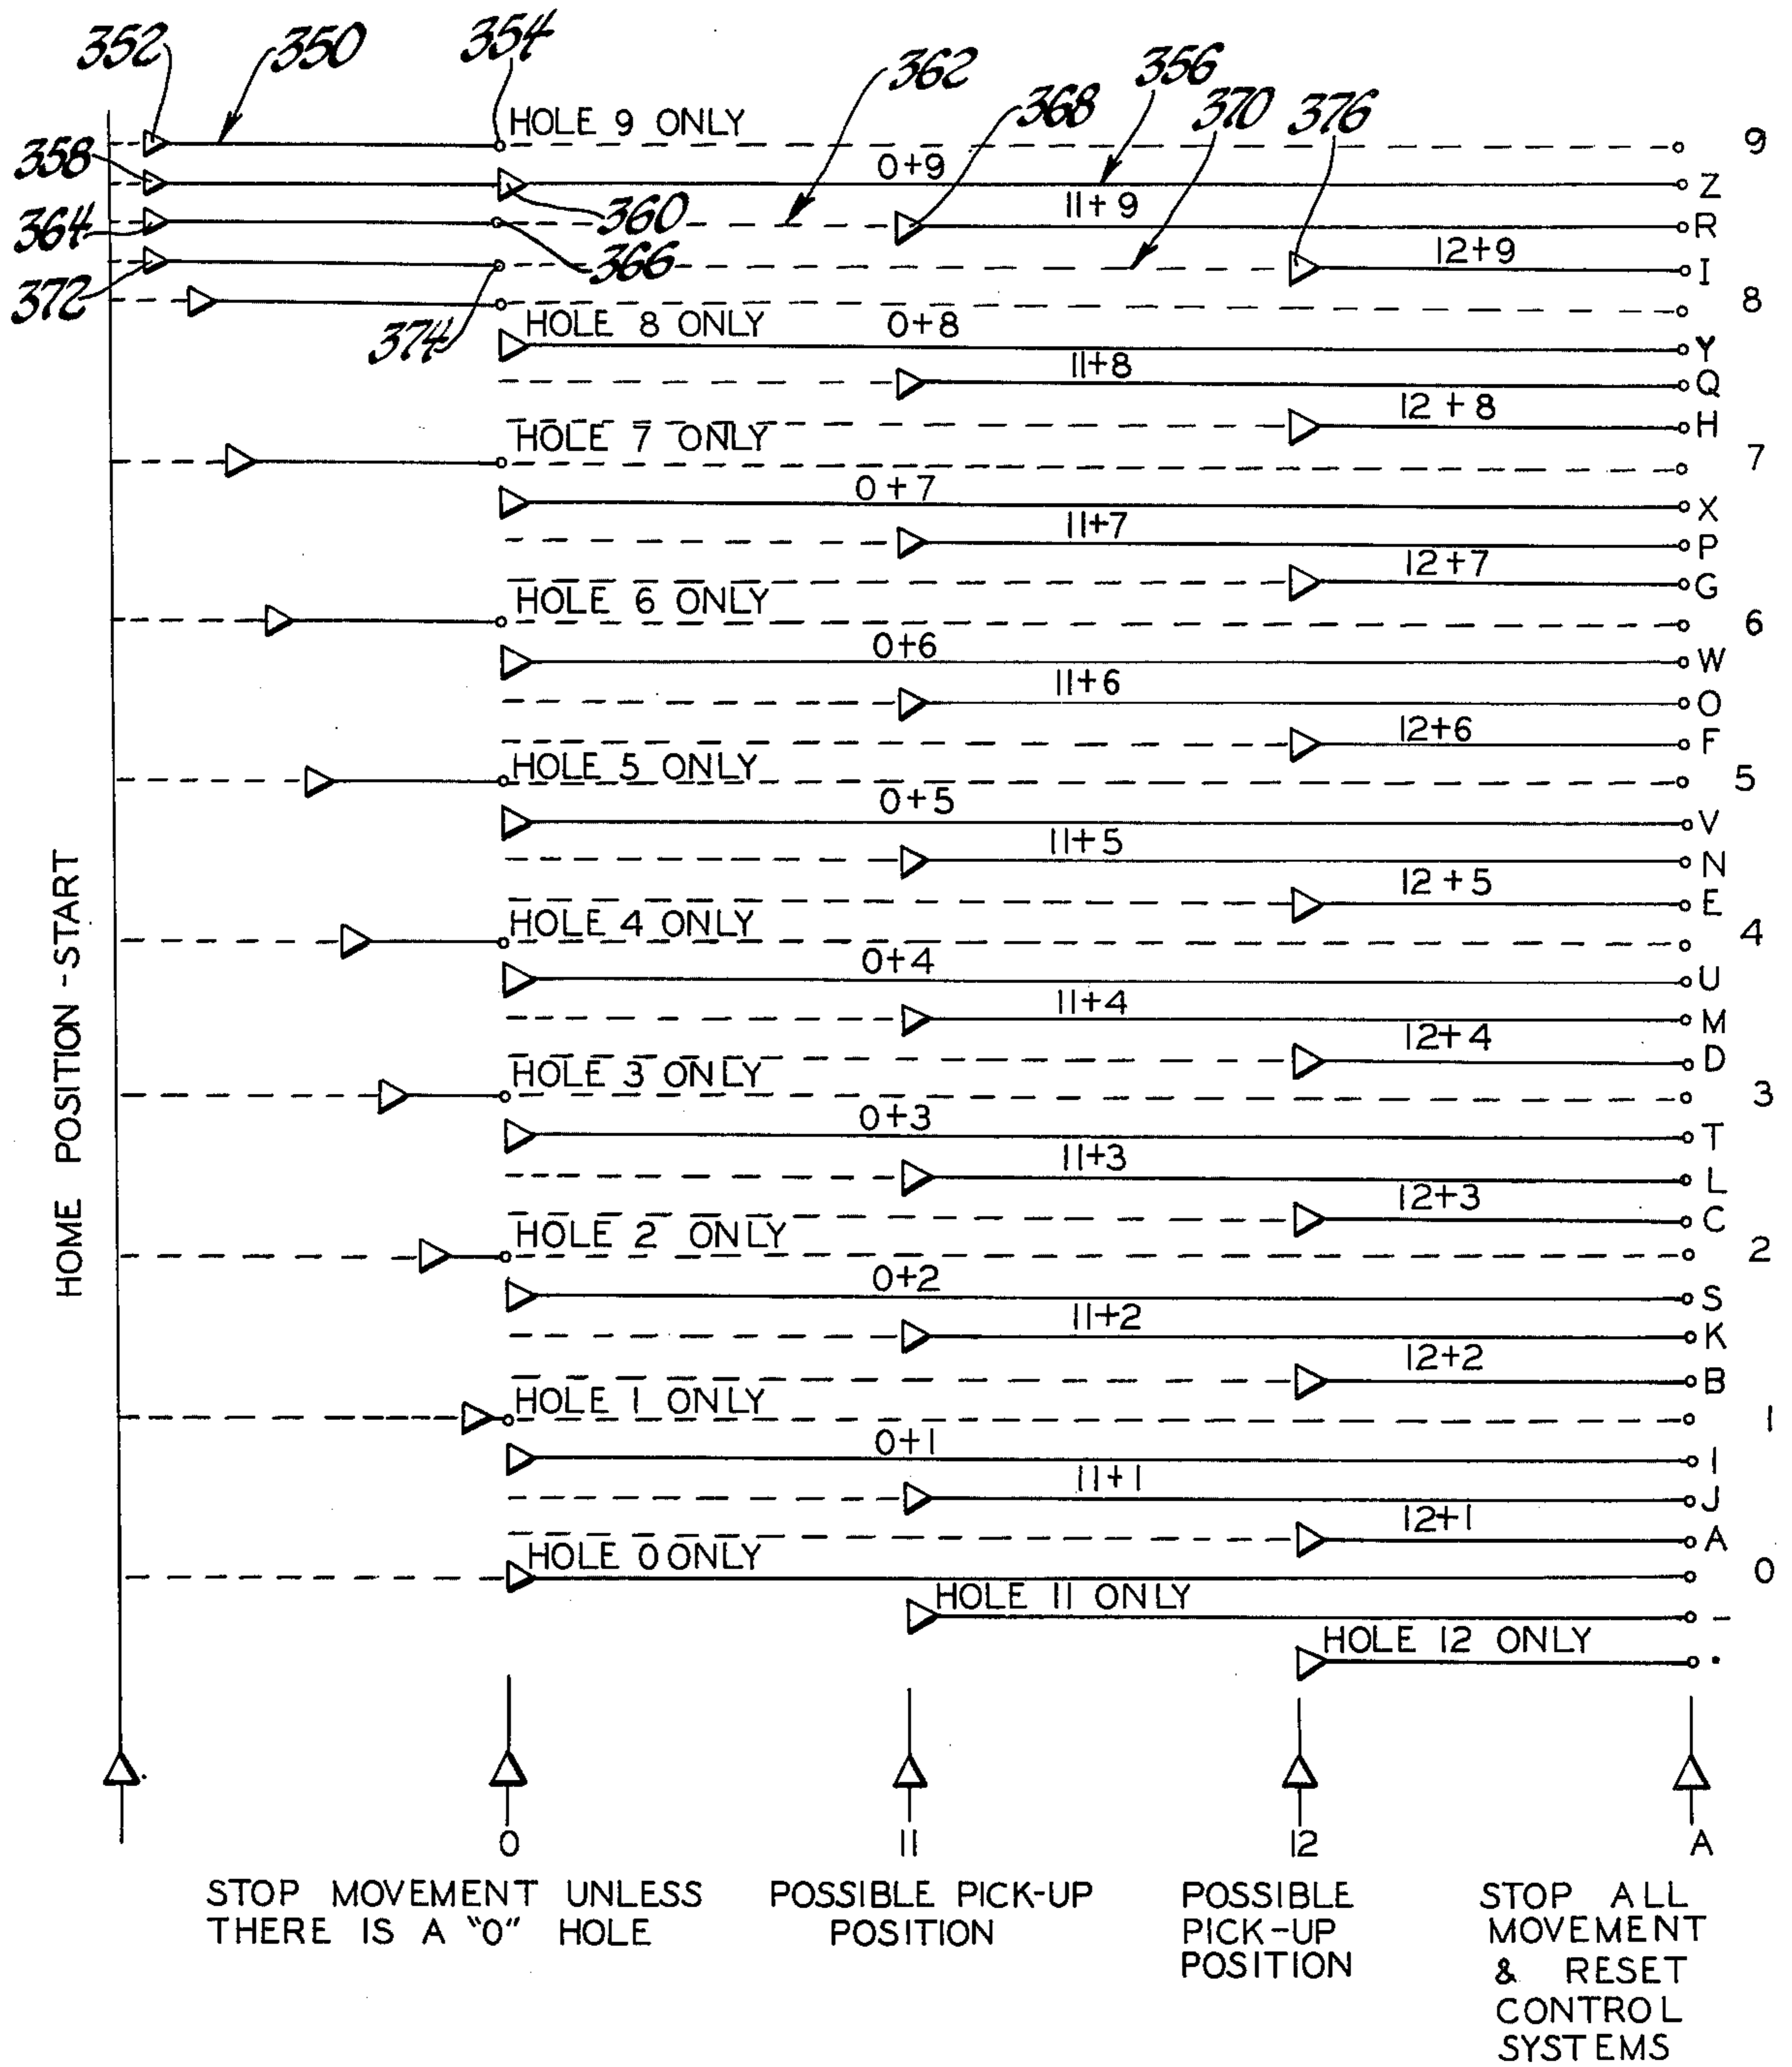 352 350 354 362 356
368 370 376
HOLE 9 ONLY 9
358 0+9 Z
360 11+9 R
364 366 12+9 I
372 8
374 HOLE 8 ONLY 0+8 Y
11+8 Q
12+8 H
HOLE 7 ONLY 7
0+7 X
11+7 P
12+7 G
HOLE 6 ONLY 6
0+6 W
11+6 O
12+6 F
HOLE 5 ONLY 5
0+5 V
11+5 N
12+5 E
HOLE 4 ONLY 4
0+4 U
11+4 M
12+4 D
HOLE 3 ONLY 3
0+3 T
11+3 L
12+3 C
HOLE 2 ONLY 2
0+2 S
11+2 K
12+2 B
HOLE 1 ONLY 1
0+1 I
11+1 J
12+1 A
HOLE 0 ONLY 0
HOLE 11 ONLY -
HOLE 12 ONLY .
HOME POSITION - START
0 11 12 A
STOP MOVEMENT UNLESS
THERE IS A "0" HOLE
POSSIBLE PICK-UP
POSITION
POSSIBLE
PICK-UP
POSITION
STOP ALL
MOVEMENT
& RESET
CONTROL
SYSTEMS